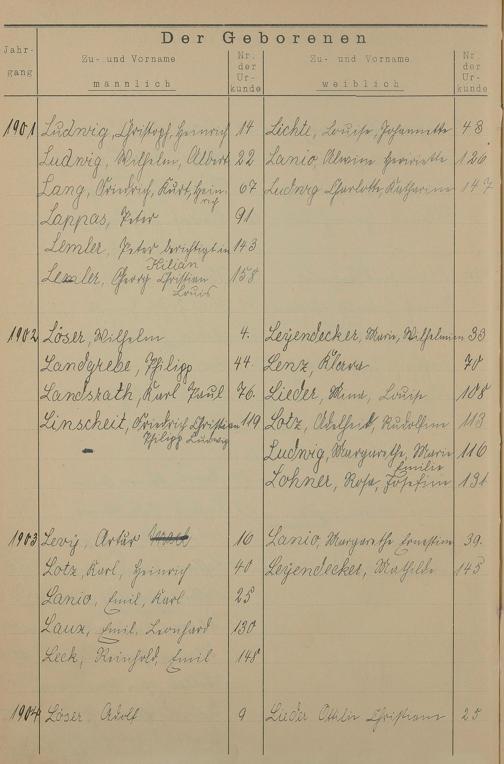 Der Geborenen
Jahr-
gang
Zu- und Vorname
männlich
Nr.
der
Ur-
kunde
Zu- und Vorname
weiblich
Nr.
der
Ur-
kunde
1901 Ludwig, Christoph, Heinrich 14 Lichte, Louise, Johannette 48
Ludwig, Wilhelm, Albert 22 Lanio, Alwine Henriette 126
Lang, Friedrich, Kurt, Hein- 67 Ludwig Charlotte, Katharine 147
rich
Lappas, Peter 91
Lemler, Peter berichtigt in 143
Kilian
Lemler, Georg Christian 158
Louis
1902 Löser, Wilhelm 4. Leyendecker, Marie, Wilhelmine 33
Landgrebe, Philipp 44. Lenz, Klara 70
Landsrath, Karl Paul 76. Lieder, Louise 108
Linscheit, Friedrich Christian 119 Lotz, Adelheid, Rudolfine 113
Philipp Ludwig
Ludwig, Margarethe, Marie 116
Emilie
Lohner, Rosa, Josefine 131
1903 Levy, Artur 16 Lanio, Margarethe Ernestine 39.
Lotz, Karl, Heinrich 40 Leyendecker, Mathilde 145
Lanio, Emil, Karl 25
Laux, Emil, Leonhard 130
Leck, Reinhold, Emil 148
1904 Löser Adolf 9 Lieder Ottilie Christiane 25